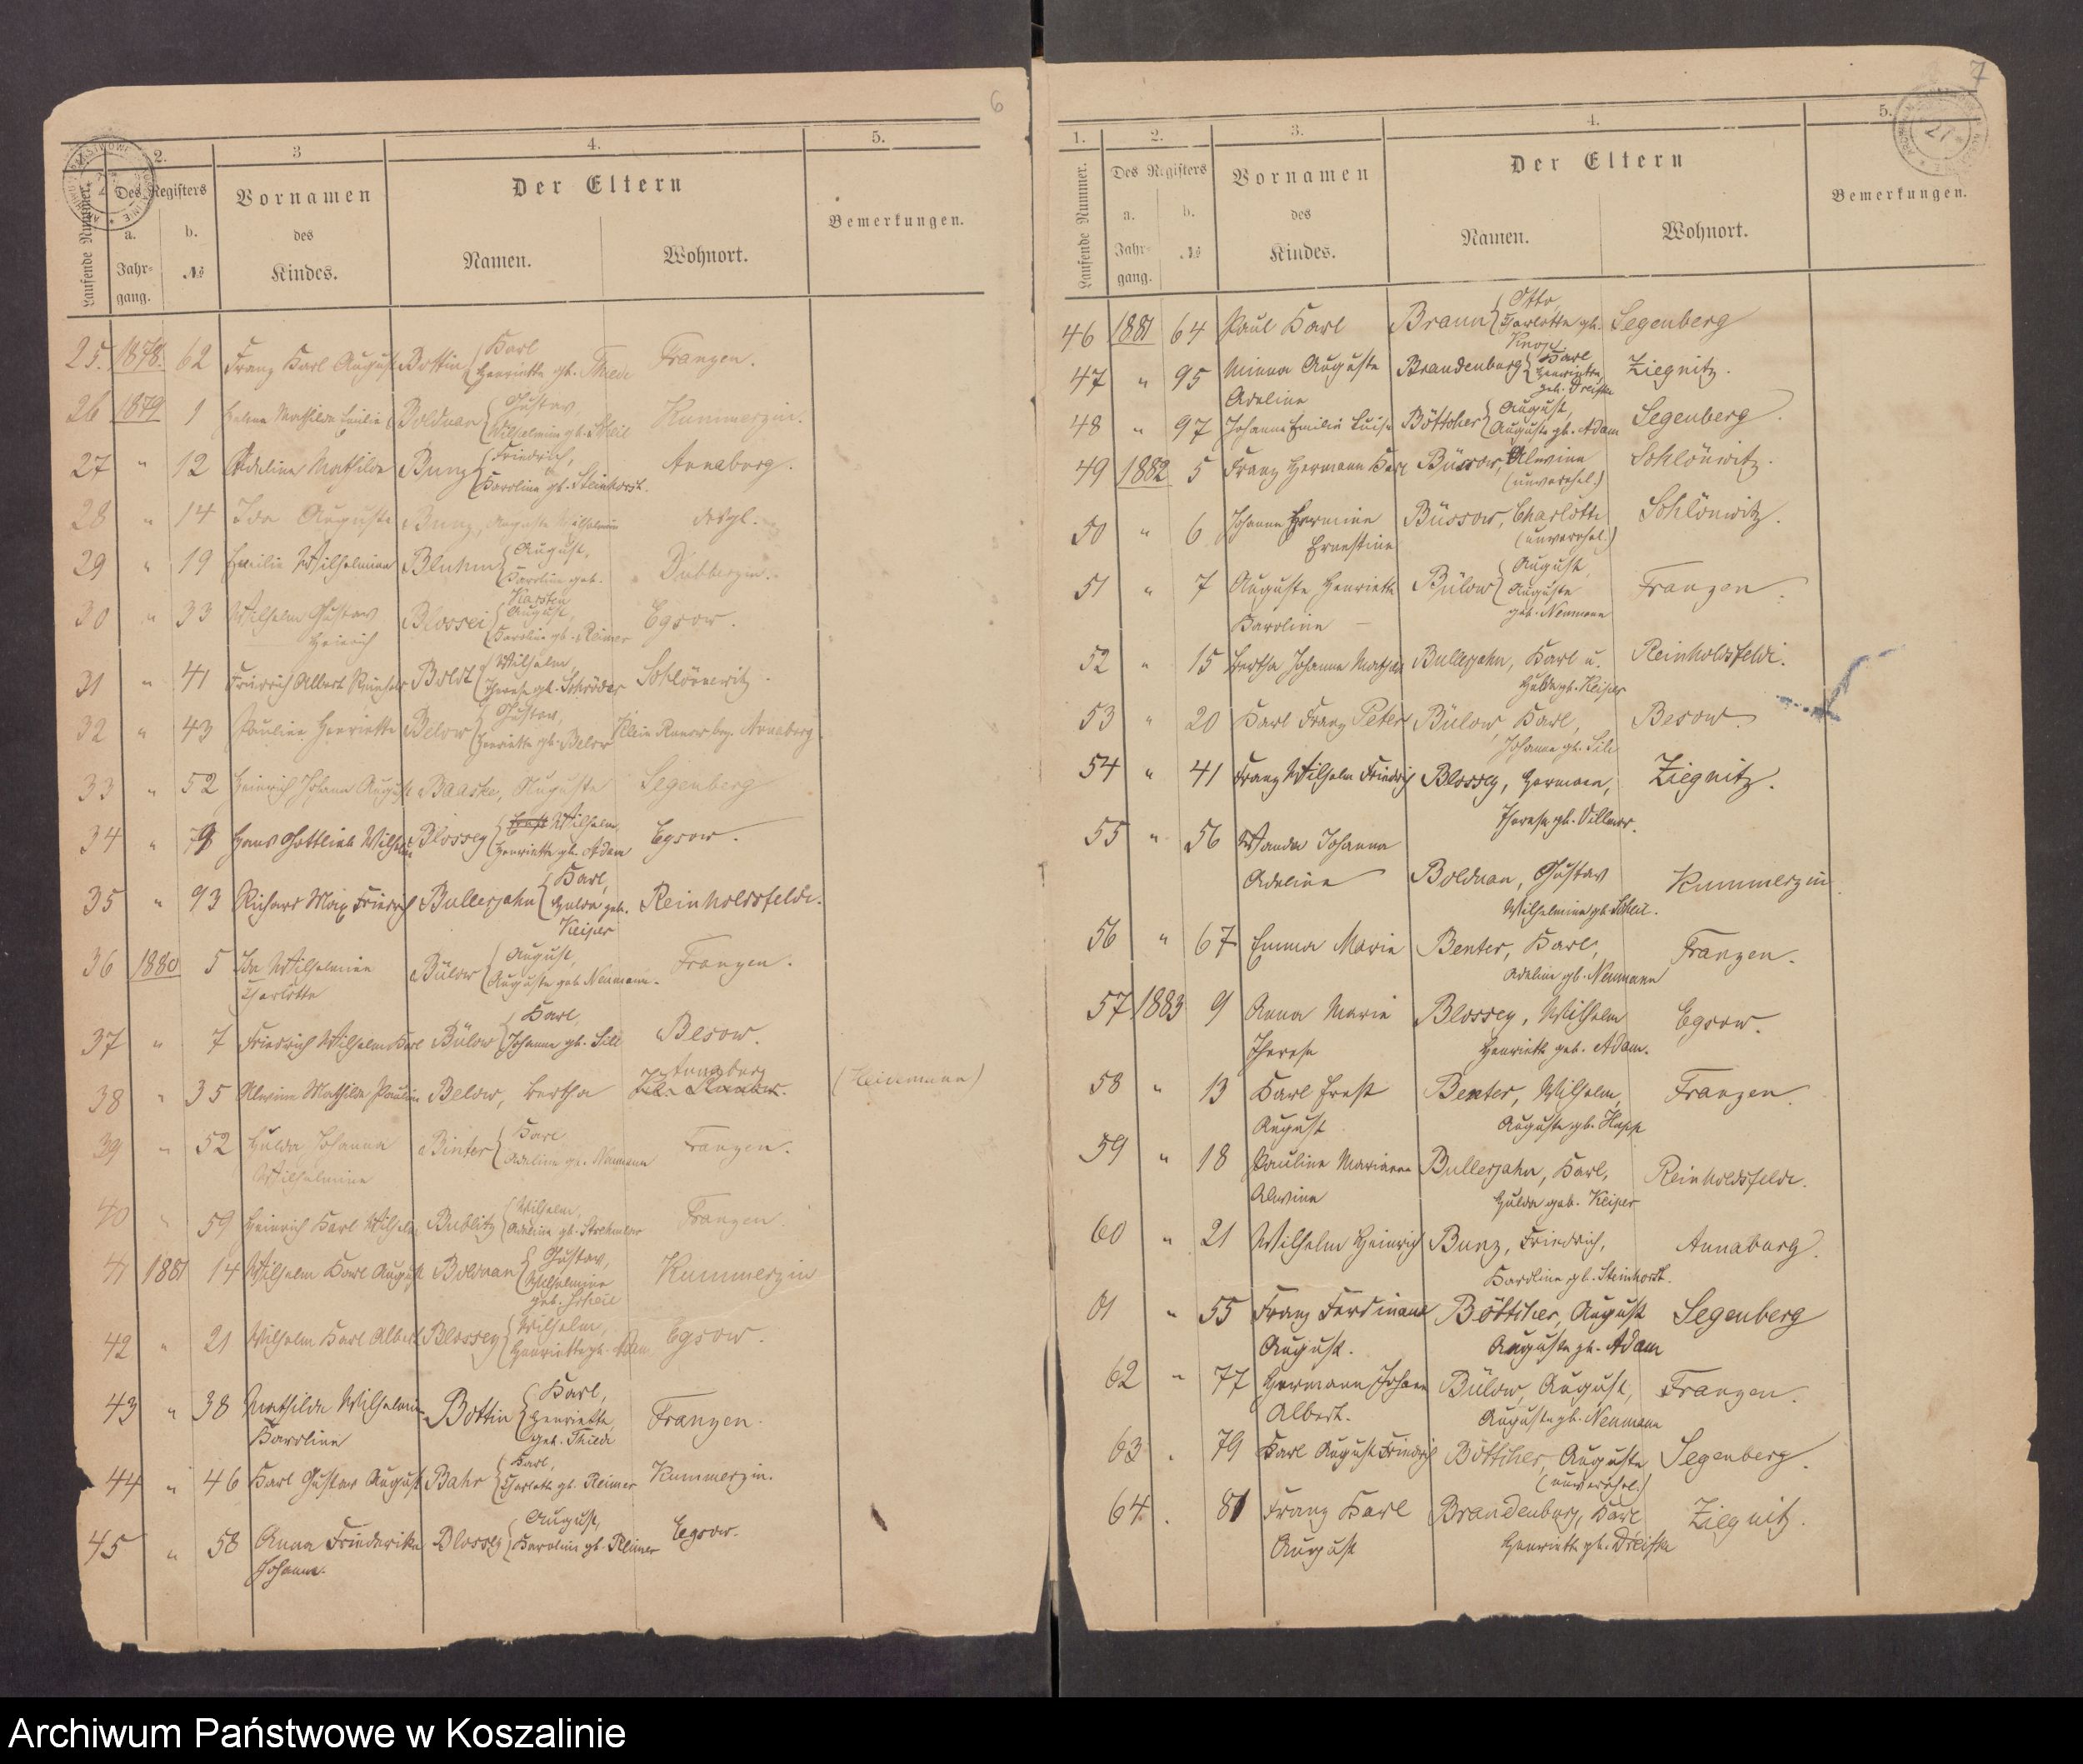 6
1.
2.
3
4.
5.
Laufende Nummer.
Des Registers
a.
Jahr-
gang.
b.
№
Vornamen
des
Kindes.
Der Eltern
Namen.
Wohnort.
Bemerkungen.
25. 1878. 62 Franz Karl August Bottin { Karl
Henriette gb. Thiede Franzen.
26 1879 1 Helene Mathilde Emilie Bolduan { Gustav,
Wilhelmine gb. Scheil Kummerzin.
27 " 12 Adeline Mathilde Bunz { Friedrich,
Karoline gb. Steinhorst. Annaburg.
28 " 14 Ida Auguste Bunz, Auguste Wilhelmine desgl.
29 " 19 Emilie Wilhelmine Bluhm { August,
Karoline geb.
Karsten Dubberzin.
30 " 33 Wilhelm Gustav
Heinrich Blossei { August,
Karoline gb. Reimer Egsow.
31 " 41 Friedrich Albert Reinhold Boldt { Wilhelm,
Therese gb. Schröder Schlönewitz.
32 " 43 Pauline Henriette Below { Gustav,
Henriette gb. Below Klein Runow bzg. Annaberg.
33 " 52 Heinrich Johann August Baaske, Auguste Segenberg
34 " 79 Hans Gottlieb Wilhelm Blossey { Ernst Wilhelm,
Henriette gb. Adam Egsow.
35 " 93 Richard Max Friedrich Bullerjahn { Karl,
Hulda geb.
Keiper Reinholdsfelde.
36 1880 5 Ida Wilhelmine
Charlotte Bülow { August,
Auguste geb. Neumann. Franzen.
37 " 7 Friedrich Wilhelm Karl Bülow { Karl,
Johanne gb. Sill Besow.
38 " 35 Alwine Mathilde Pauline Below, Bertha Annaburg
Kl. Runow. (Heidemann)
39 " 52 Hulda Johanna
Wilhelmine Binter { Karl
Adeline gb. Neumann Franzen.
40 " 59 Heinrich Karl Wilhelm Bublitz { Wilhelm,
Adeline gb. Strehmlow Franzen.
41 1881 14 Wilhelm Karl August Bolduan { Gustav,
Wilhelmine
geb. Scheil Kummerzin
42 " 21 Wilhelm Karl Albert Blossey { Wilhelm,
Henriette gb. Adam Egsow.
43 " 38 Mathilde Wilhelmine
Karoline Bottin { Karl,
Henriette
geb. Thiede Franzen.
44 " 46 Karl Gustav August Bahr { Karl,
Charlotte gb. Reimer Kummerzin.
45 " 58 Anna Friederike
Johanna. Blossey { August,
Karoline gb. Reimer Egsow.
7
1.
2.
3.
4.
5.
Laufende Nummer.
Des Registers
a.
Jahr-
gang.
b.
№
Vornamen
des
Kindes.
Der Eltern
Namen.
Wohnort.
Bemerkungen.
46 1881 64 Paul Karl Braun { Otto,
Charlotte gb.
Knop Segenberg
47 " 95 Minna Auguste
Adeline Brandenburg { Karl
Henriette,
geb. Dreistke Ziegnitz.
48 " 97 Johanne Emilie Luise Böttcher { August,
Auguste gb. Adam Segenberg.
49 1882 5 Franz Hermann Karl Büssow, Alwine
(unverehel.) Schlönwitz.
50 " 6 Johanne Hermine
Ernestine Büssow, Charlotte
(unverehel.) Schlönwitz.
51 " 7 Auguste Henriette
Karoline Bülow { August,
Auguste
geb. Neumann Franzen.
52 " 15 Bertha Johanne Mathilde Bullerjahn, Karl u.
Hulda gb. Keiper Reinholdsfelde.
53 " 20 Karl Franz Peter Bülow, Karl,
Johanne gb. Sill Besow.
54 " 41 Franz Wilhelm Friedrich Blossey, Hermann,
Therese gb. Villnow. Ziegnitz.
55 " 56 Wanda Johanna
Adeline Bolduan, Gustav
Wilhelmine gb. Scheil. Kummerzin.
56 " 67 Emma Marie Benter, Karl,
Adeline gb. Neumann Franzen.
57 1883 9 Anna Marie
Therese Blossey, Wilhelm
Henriette geb. Adam. Egsow.
58 " 13 Karl Ernst
August Benter, Wilhelm,
Auguste gb. Hopp Franzen.
59 " 18 Pauline Marianne
Alwine Bullerjahn, Karl,
Hulda geb. Keiper Reinholdsfelde.
60 " 21 Wilhelm Heinrich Bunz, Friedrich,
Karoline gb. Steinhorst. Annaburg.
61 " 55 Franz Ferdinand
August. Böttcher, August
Auguste gb. Adam Segenberg
62 " 77 Hermann Johann
Albert. Bülow, August,
Auguste gb. Neumann Franzen.
63 . 79 Karl August Friedrich Böttcher, Auguste
(unverehel.) Segenberg.
64 . 81 Franz Karl
August Brandenburg, Karl
Henriette gb. Dreistke Ziegnitz.
Archiwum Państwowe w Koszalinie